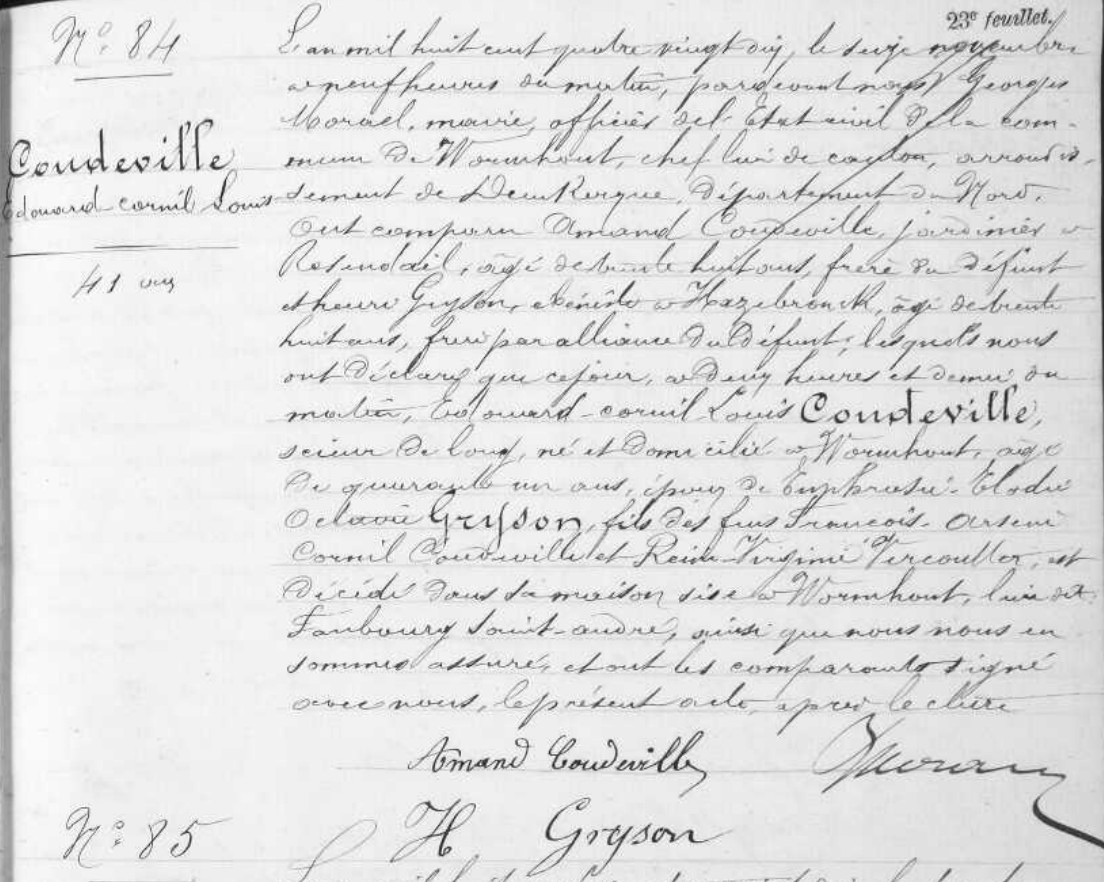 23e feuillet.
N° 84
Coudeville
Edouard-cornil Louis
41 ans
L'an mil huit cent quatre vingt dix, le seize novembre
a neuf heures du matin, pardevant nous Georges
Morael, maire, officier del'Etat civil de la com-
mune de Wormhout, chef lieu de canton, arrondis-
sement de Dunkerque, département du Nord,
Ont comparu Amand Coudeville, jardinier a
Rosendael, âgé de trente huit ans, frère du défunt
et henri Gryson, ébéniste a Hazebrouck, âgé de trente
huit ans, frère par alliance du défunt; lesquels nous
ont déclaré que cejour, a deux heures et demie du
matin, Edouard-cornil Louis Coudeville,
scieur de long, né et domicilié a Wormhout, âgé
de quarante un ans, époux de Euphrasie-Elodie
Octavie Gryson, fils des feus Francois-Arsene
Cornil Coudeville et Reine-Virginie Vercoutter, est
décédé dans sa maison sise a Wormhout, lieu dit
Faubourg Saint-andré, ainsi que nous nous en
sommes assuré, et ont les comparants signé
avec nous, leprésent acte, après lecture
Amand Coudeville
H Gryson
N° 85